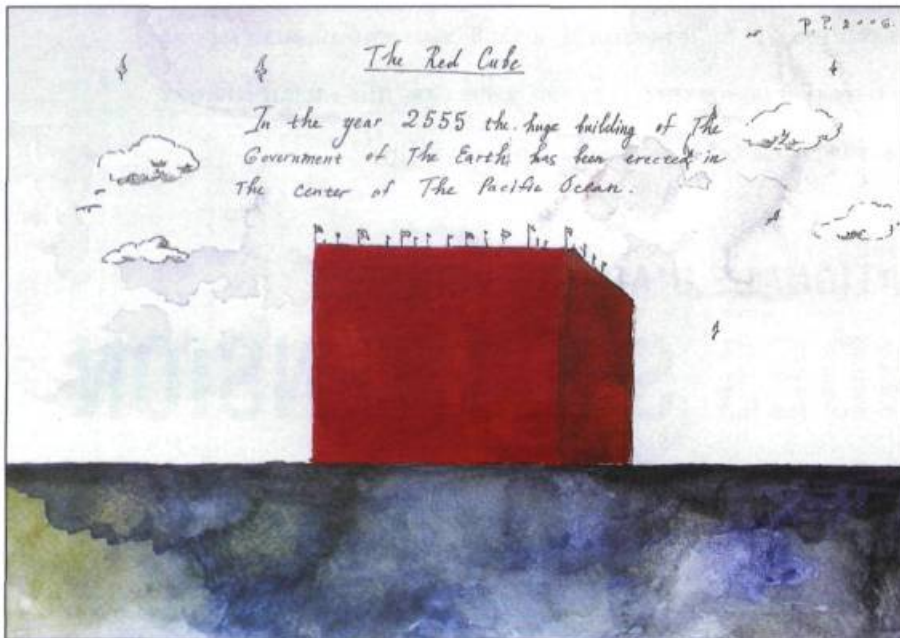 P.P. 2006.
The Red Cube
In the year 2555 the huge building of The
Government of The Earth has been erected in
The center of The Pacific Ocean.